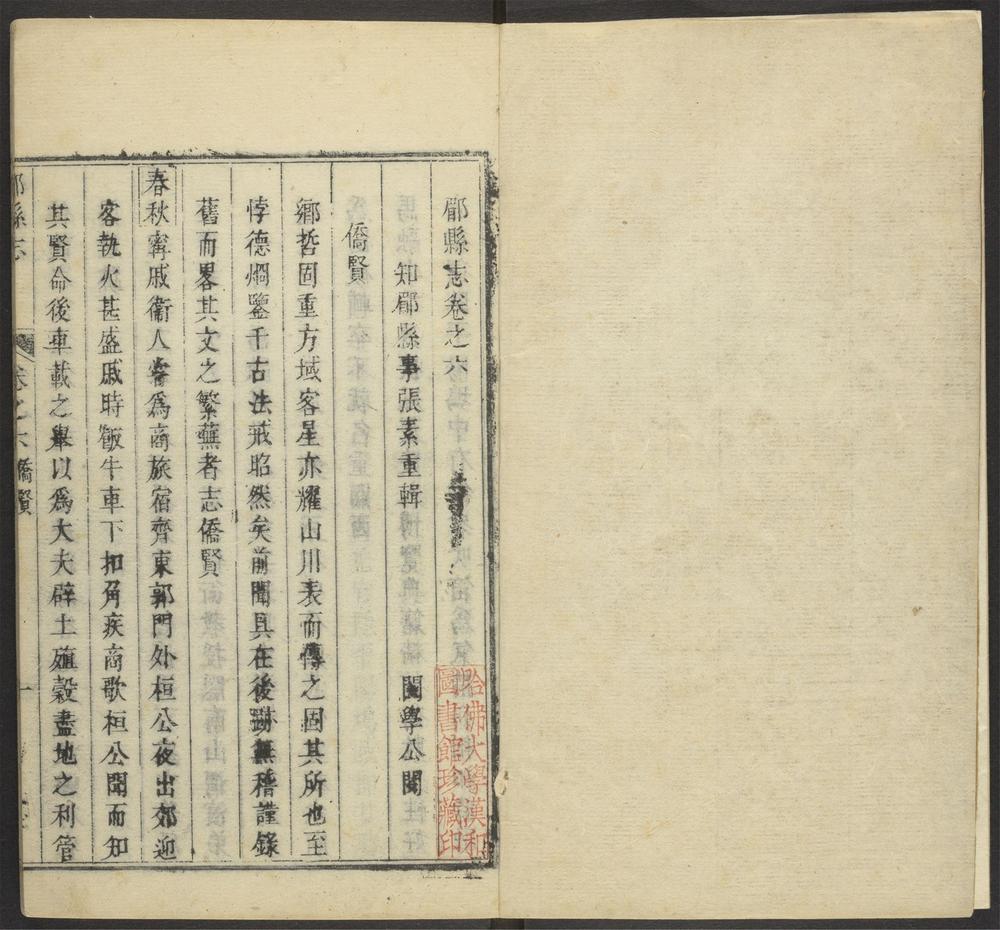 郿縣志卷之六
知郿縣事張素重輯　闔學公閱
僑賢
鄉哲固重方域客星亦耀山川表而傳之固其所也至
悖德烱鑒千古法戒昭然矣前聞具在後跡無稽謹錄
舊而畧其文之繁蕪者志僑賢
春秋寗戚衞人為商旅宿齊東郭門外桓公夜出郊迎
客執火甚盛戚時飯牛車下扣角疾商歌桓公聞而知
其賢命後車載之舉以爲大夫辟土殖穀盡地之利管
郿縣志　卷之六僑賢　一
哈佛大學漢和
圖書館珍藏印